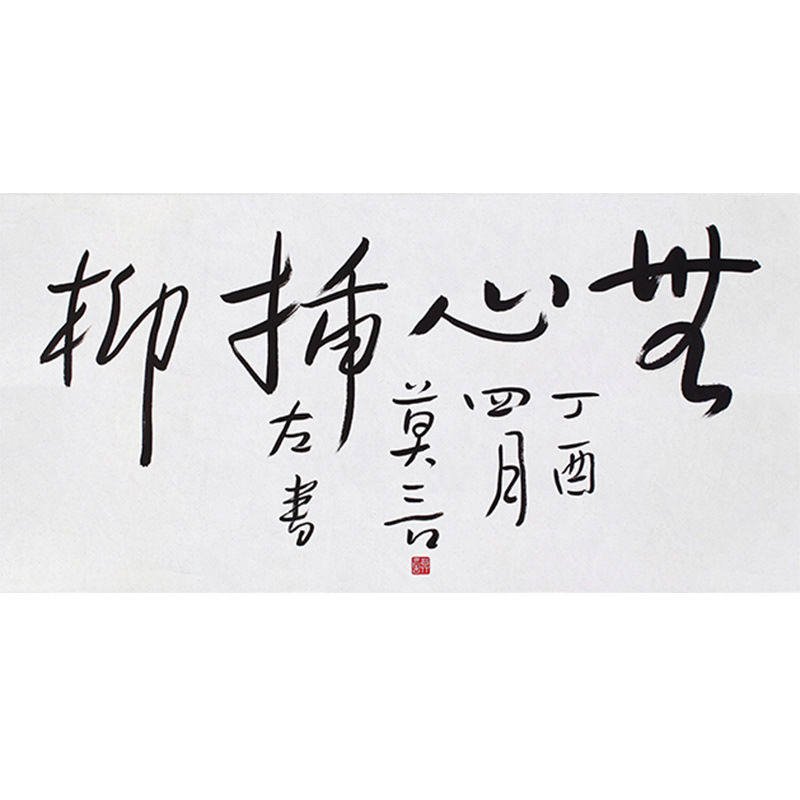 無心插柳
丁酉
四月
莫言
左书